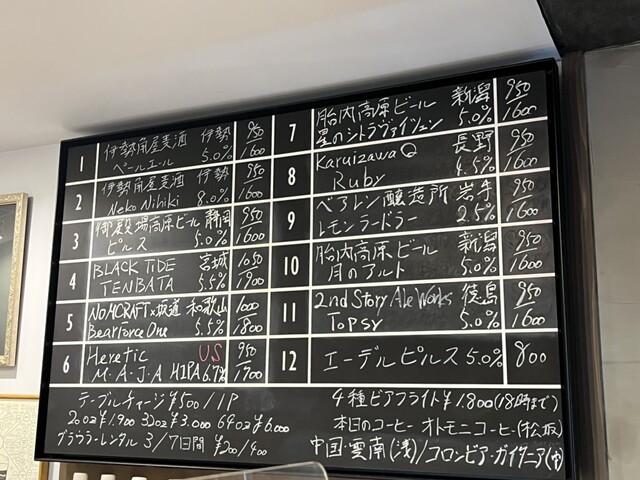 1 伊勢角屋麦酒 伊勢 950
ペールエール 5.0% 1600
2 伊勢角屋麦酒 伊勢 950
Neko Nihiki 8.0% 1600
3 御殿場高原ビール 静岡 950
ピルス 5.0% 1600
4 BLACK TIDE 宮城 1050
TENBATA 5.5% 1900
5 NOMCRAFT×坂道 和歌山 1000
Bearforce One 5.5% 1800
6 Heretic US 950
M・A・J・A HIPA 6.7% 1700
7 胎内高原ビール 新潟 950
星のシトラヴァイツェン 5.0% 1600
8 Karuizawa Q 長野 950
Ruby 4.5% 1600
9 ベアレン醸造所 岩手 950
レモンラードラー 2.5% 1600
10 胎内高原ビール 新潟 950
月のアルト 5.0% 1600
11 2nd Story Ale Works 徳島 950
Topsy 5.0% 1600
12 エーデルピルス 5.0% 800
テーブルチャージ ¥500/1P
20oz ¥1.900 32oz ¥3.000 64oz ¥6.000
グラウラーレンタル 3/7日間 ¥200/400
4種ビアフライト ¥1.800(18時まで)
本日のコーヒー オトモニコーヒー(松阪)
中国・雲南(浅)/コロンビア・ガイタニア(中)